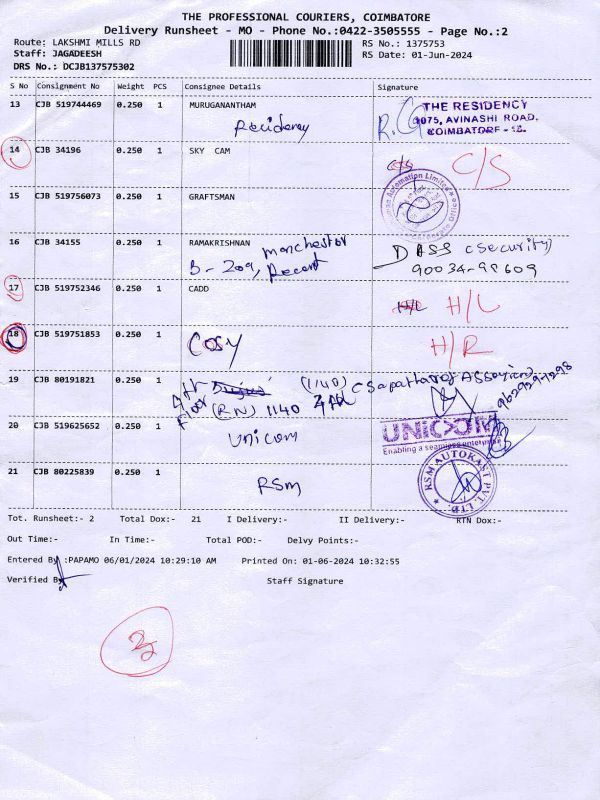 THE PROFESSIONAL COURIERS, COIMBATORE
Delivery Runsheet - MO - Phone No.:0422-3505555 - Page No.:2
Route: LAKSHMI MILLS RD
RS No.: 1375753
Staff: JAGADEESH
RS Date: 01-Jun-2024
DRS No.: DCJB137575302
S No Consignment No Weight PCS Consignee Details Signature
13 CJB 519744469 0.250 1 MURUGANANTHAM
Residency
R.G
THE RESIDENCY
1075, AVINASHI ROAD.
COIMBATORE - 18.
14 CJB 34196 0.250 1 SKY CAM
C/S C/S
15 CJB 519756073 0.250 1 GRAFTSMAN
Automation Limited
16 CJB 34155 0.250 1 RAMAKRISHNAN
B-209, Manchester
Regent
DASS (Security)
90034-98609
17 CJB 519752346 0.250 1 CADD
H/L H/L
18 CJB 519751853 0.250 1
Cosy
H/R
19 CJB 80191821 0.250 1
4th (1140)
Floor (RN) 1140
20 CJB 519625652 0.250 1
Unicom
UNICOM
Enabling a seamless enterprise
21 CJB 80225839 0.250 1
RSM
RSM AUTOKAST PVT. LTD.
Tot. Runsheet:- 2 Total Dox:- 21 I Delivery:- II Delivery:- RTN Dox:-
Out Time:- In Time:- Total POD:- Delvy Points:-
Entered By :PAPAMO 06/01/2024 10:29:10 AM Printed On: 01-06-2024 10:32:55
Verified By Staff Signature